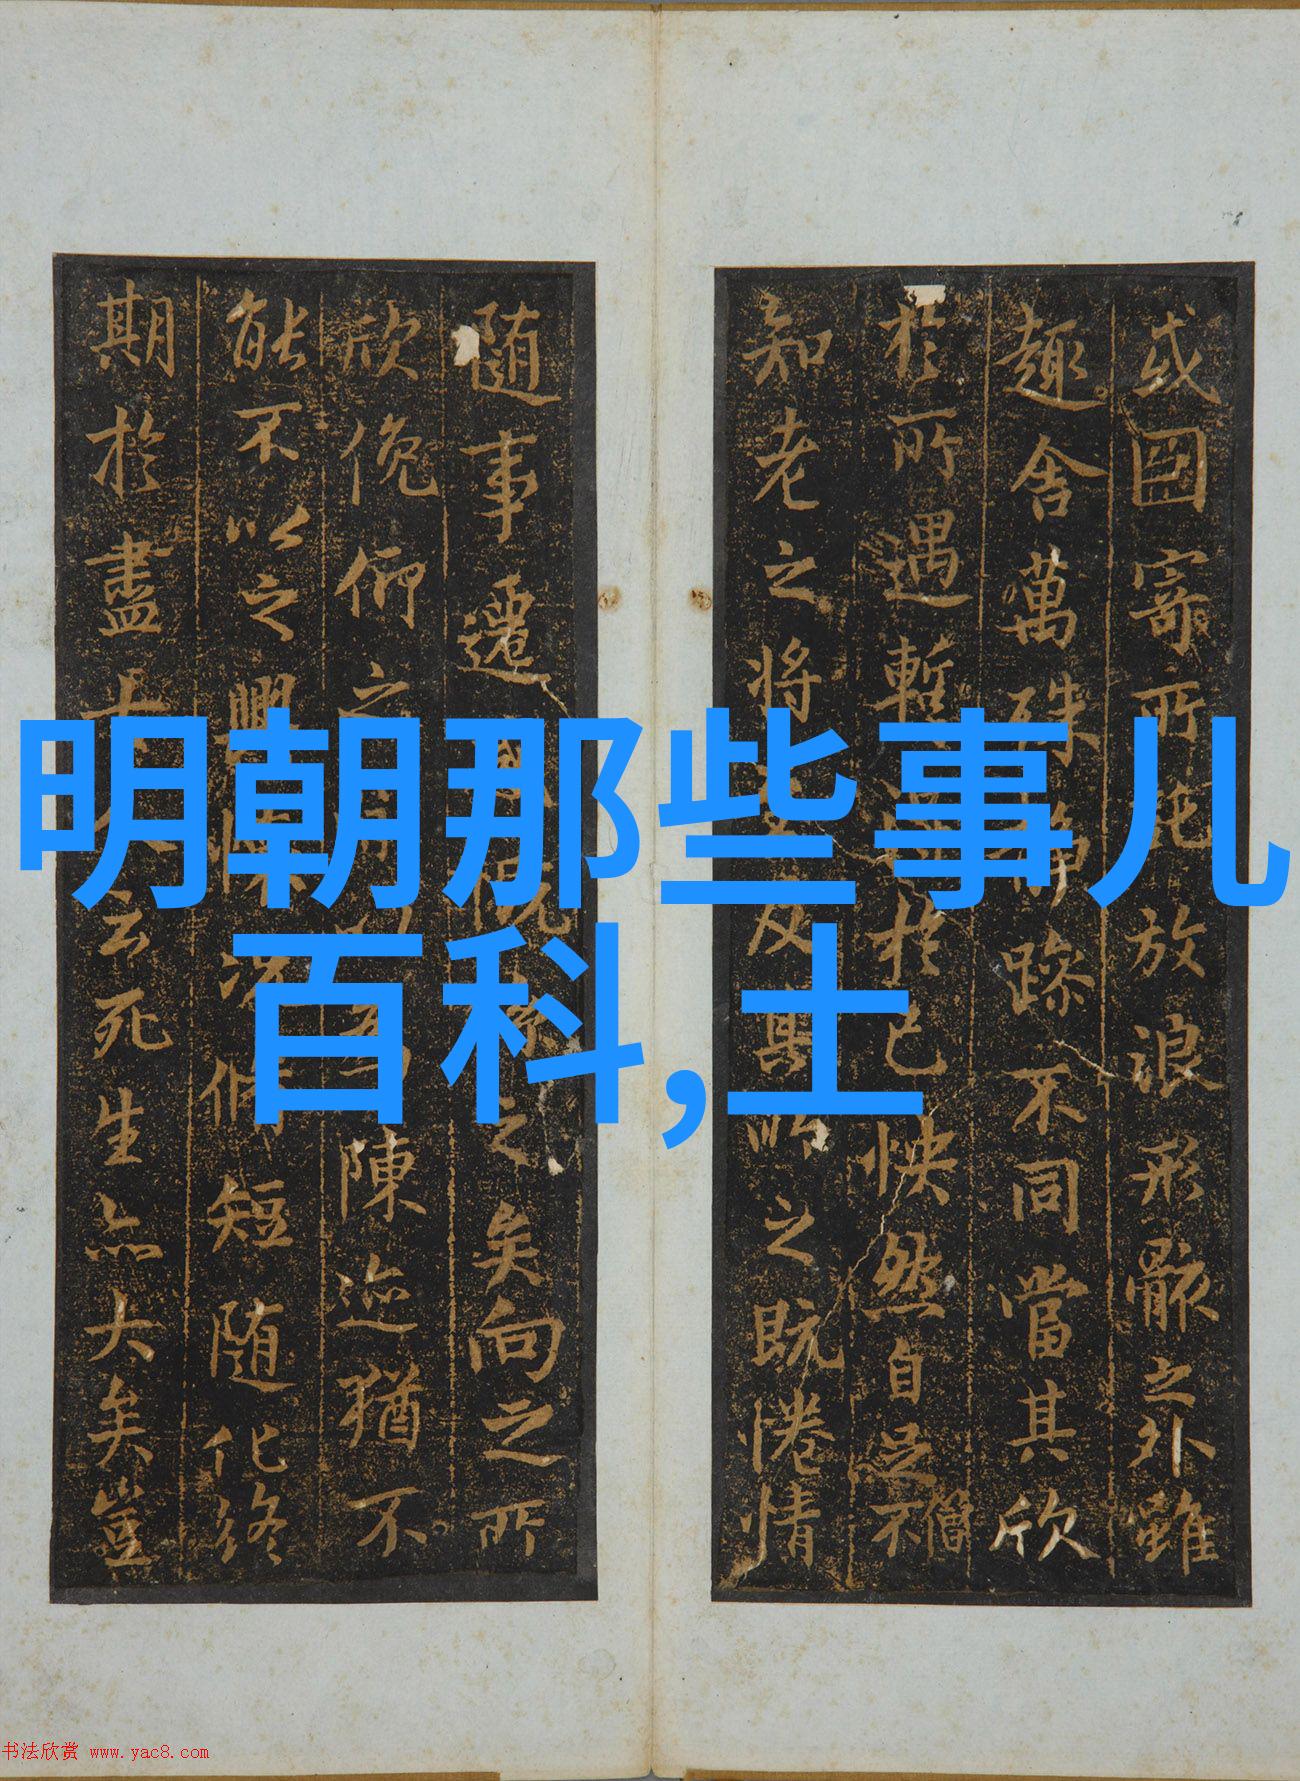 或因寄所託放浪形骸之外雖
趣舍萬殊靜躁不同當其欣
於所遇暫於己怏然自足不
僧
知老之將及其所之既惓情
随事遷感慨係之矣向之所
欣俛仰之陳迹猶不
能不以之興懷況脩短随化終
期於盡云死生亦大矣豈
明朝那些事儿
百科,土
书法欣赏 www.yac8.com